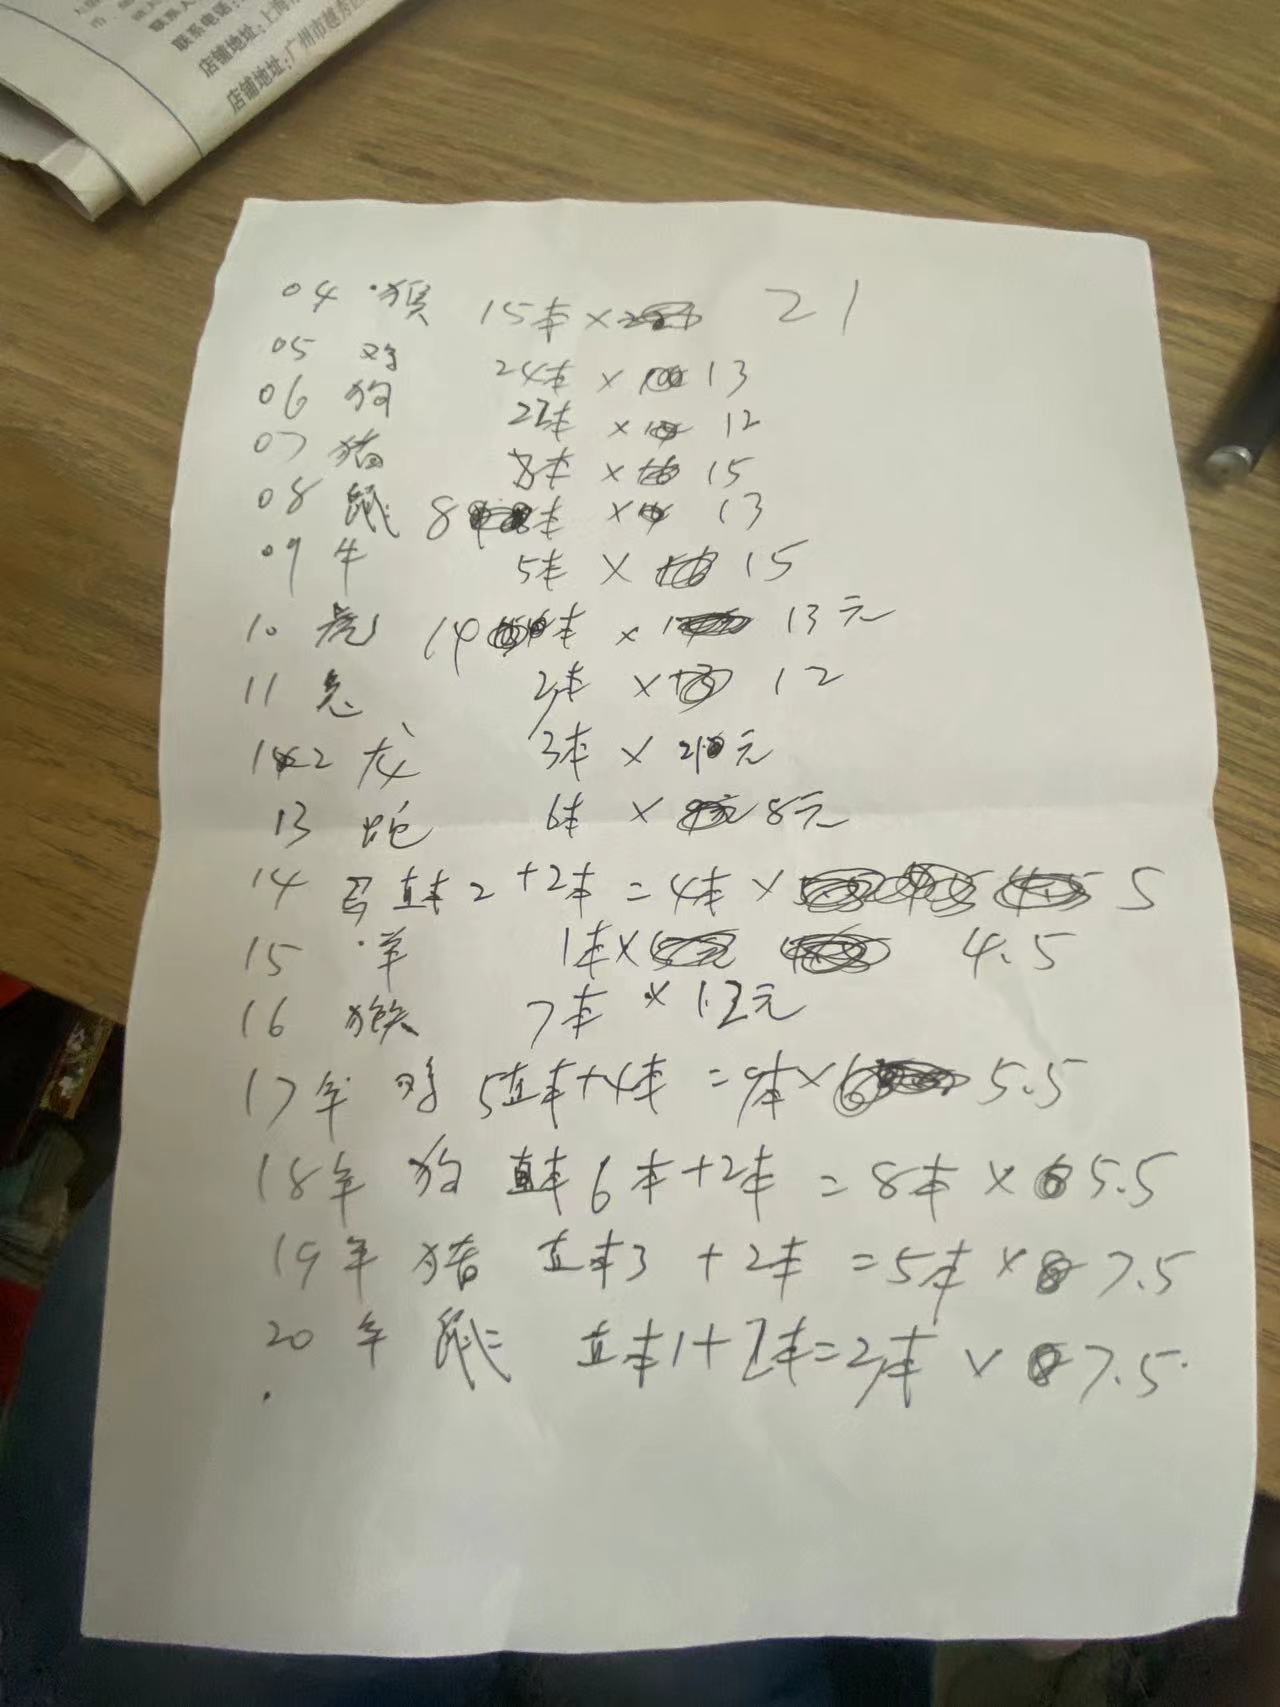 联系电话:
店铺地址:上海市
店铺地址:广州市越秀区
04 猴 15本× 21
05 鸡 24本× 13
06 狗 22本× 12
07 猪 8本× 15
08 鼠 8本× 13
09 牛 5本× 15
10 虎 14本× 13元
11 兔 2本× 12
12 龙 3本× 元
13 蛇 6本× 8元
14 马 2+2本=4本× 5
15 羊 1本× 4.5
16 猴 7本× 元
17年 鸡 5 本+4本=9本× 5.5
18年 狗 6本+2本=8本× 5.5
19年 猪 3+2本=5本× 7.5
20年 鼠 1+1本=2本× 7.5